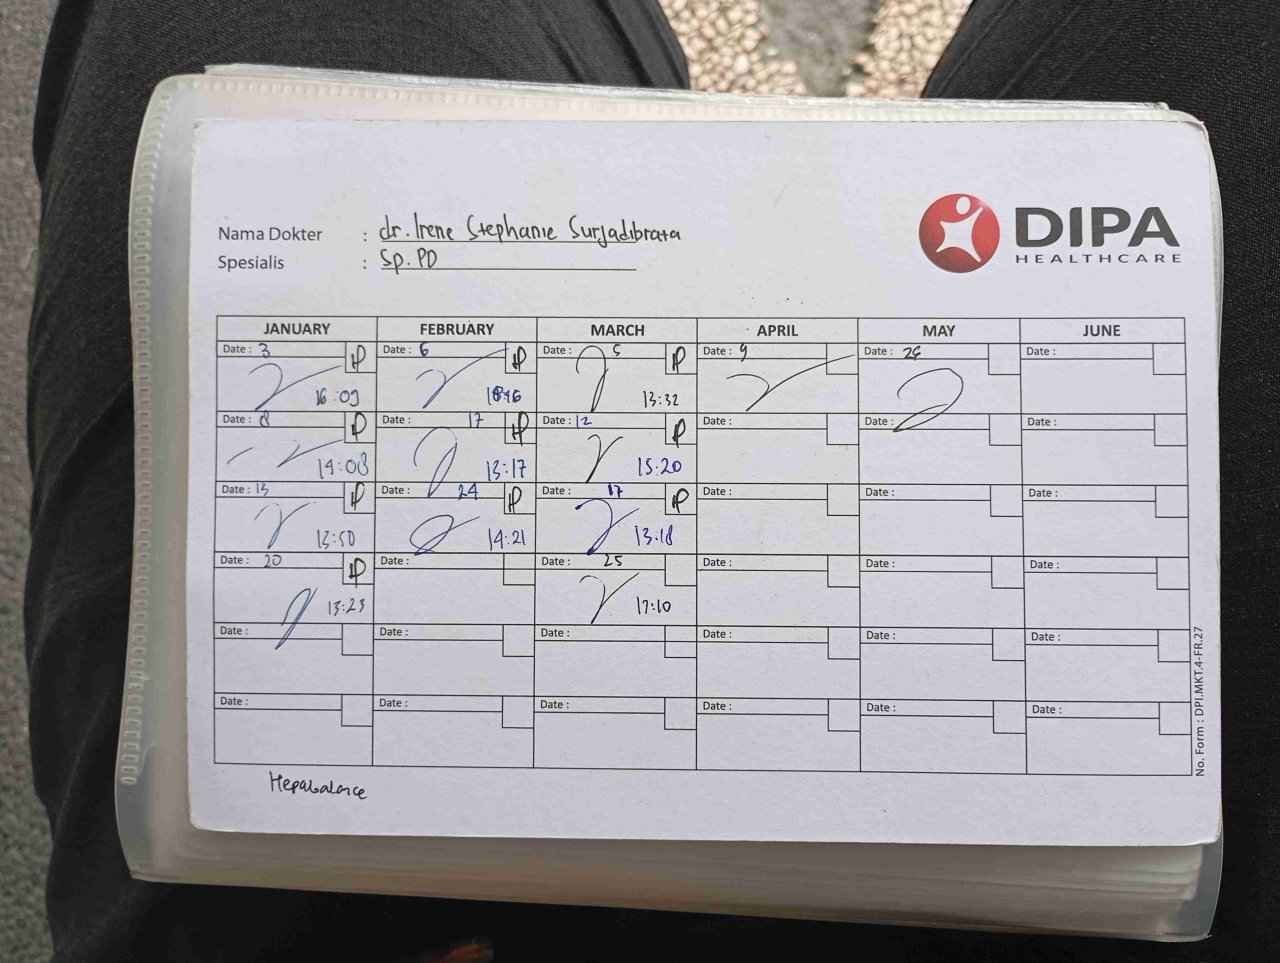 Nama Dokter : dr. Irene Stephanie Surjadibrata
Spesialis : Sp.PD
DIPA
HEALTHCARE
JANUARY FEBRUARY MARCH APRIL MAY JUNE
Date : 3 Date : 6 Date : 5 Date : 9 Date : Date :
16:09 13:32
Date : 8 Date : 17 Date : 12 Date : Date : Date :
14:08 13:17 15:20
Date : 13 Date : 24 Date : 17 Date : Date : Date :
13:50 14:21 13:18
Date : 20 Date : Date : 25 Date : Date : Date :
13:23 17:10
Date : Date : Date : Date : Date : Date :
Date : Date : Date : Date : Date : Date :
Hepabalance
No. Form : DPI.MKT.4-FR.27